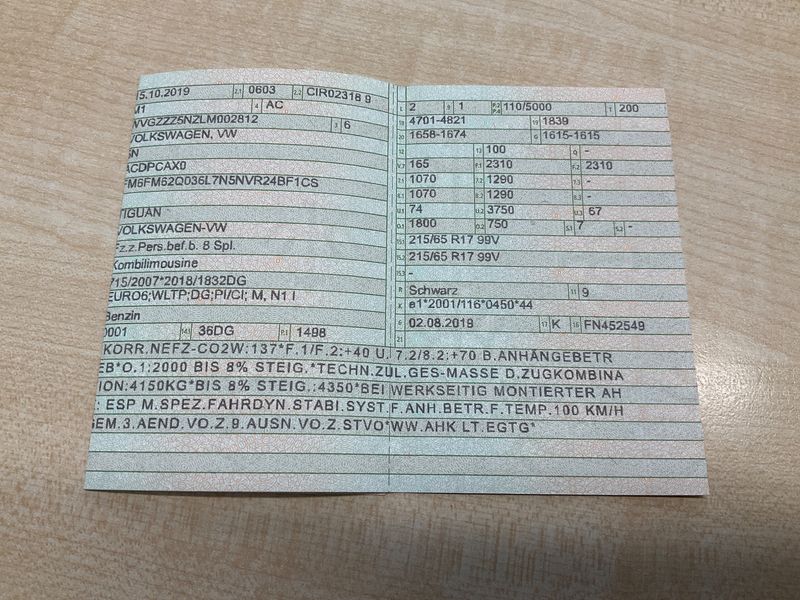 5.10.2019 2.1 0603 2.2 CIR02318 9
M1 4 AC
WVGZZZ5NZLM002812 3 6
VOLKSWAGEN, VW
5N
ACDPCAX0
FM6FM62Q036L7N5NVR24BF1CS
TIGUAN
VOLKSWAGEN-VW
Fz.z.Pers.bef.b. 8 Spl.
Kombilimousine
715/2007*2018/1832DG
EURO6;WLTP;DG;PI/CI; M, N1 I
Benzin
0001 14.1 36DG P.1 1498
L 2 9 1 P.2 P.4 110/5000 T 200
18 4701-4821 19 1839
20 1658-1674 G 1615-1615
12 - 13 100 Q -
V.7 165 F.1 2310 F.2 2310
7.1 1070 7.2 1290 7.3 -
8.1 1070 8.2 1290 8.3 -
U.1 74 U.2 3750 U.3 67
O.1 1800 O.2 750 S.1 7 S.2 -
15.1 215/65 R17 99V
15.2 215/65 R17 99V
15.3 -
R Schwarz 11 9
K e1*2001/116*0450*44
6 02.08.2019 17 K 16 FN452549
21
KORR.NEFZ-CO2W:137*F.1/F.2:+40 U.7.2/8.2:+70 B.ANHÄNGEBETR
EB*O.1:2000 BIS 8% STEIG.*TECHN.ZUL.GES-MASSE D.ZUGKOMBINA
ION:4150KG*BIS 8% STEIG.:4350*BEI WERKSEITIG MONTIERTER AH
: ESP M.SPEZ.FAHRDYN.STABI.SYST.F.ANH.BETR.F.TEMP.100 KM/H
GEM.3.AEND.VO.Z.9.AUSN.VO.Z.STVO*WW.AHK LT.EGTG*